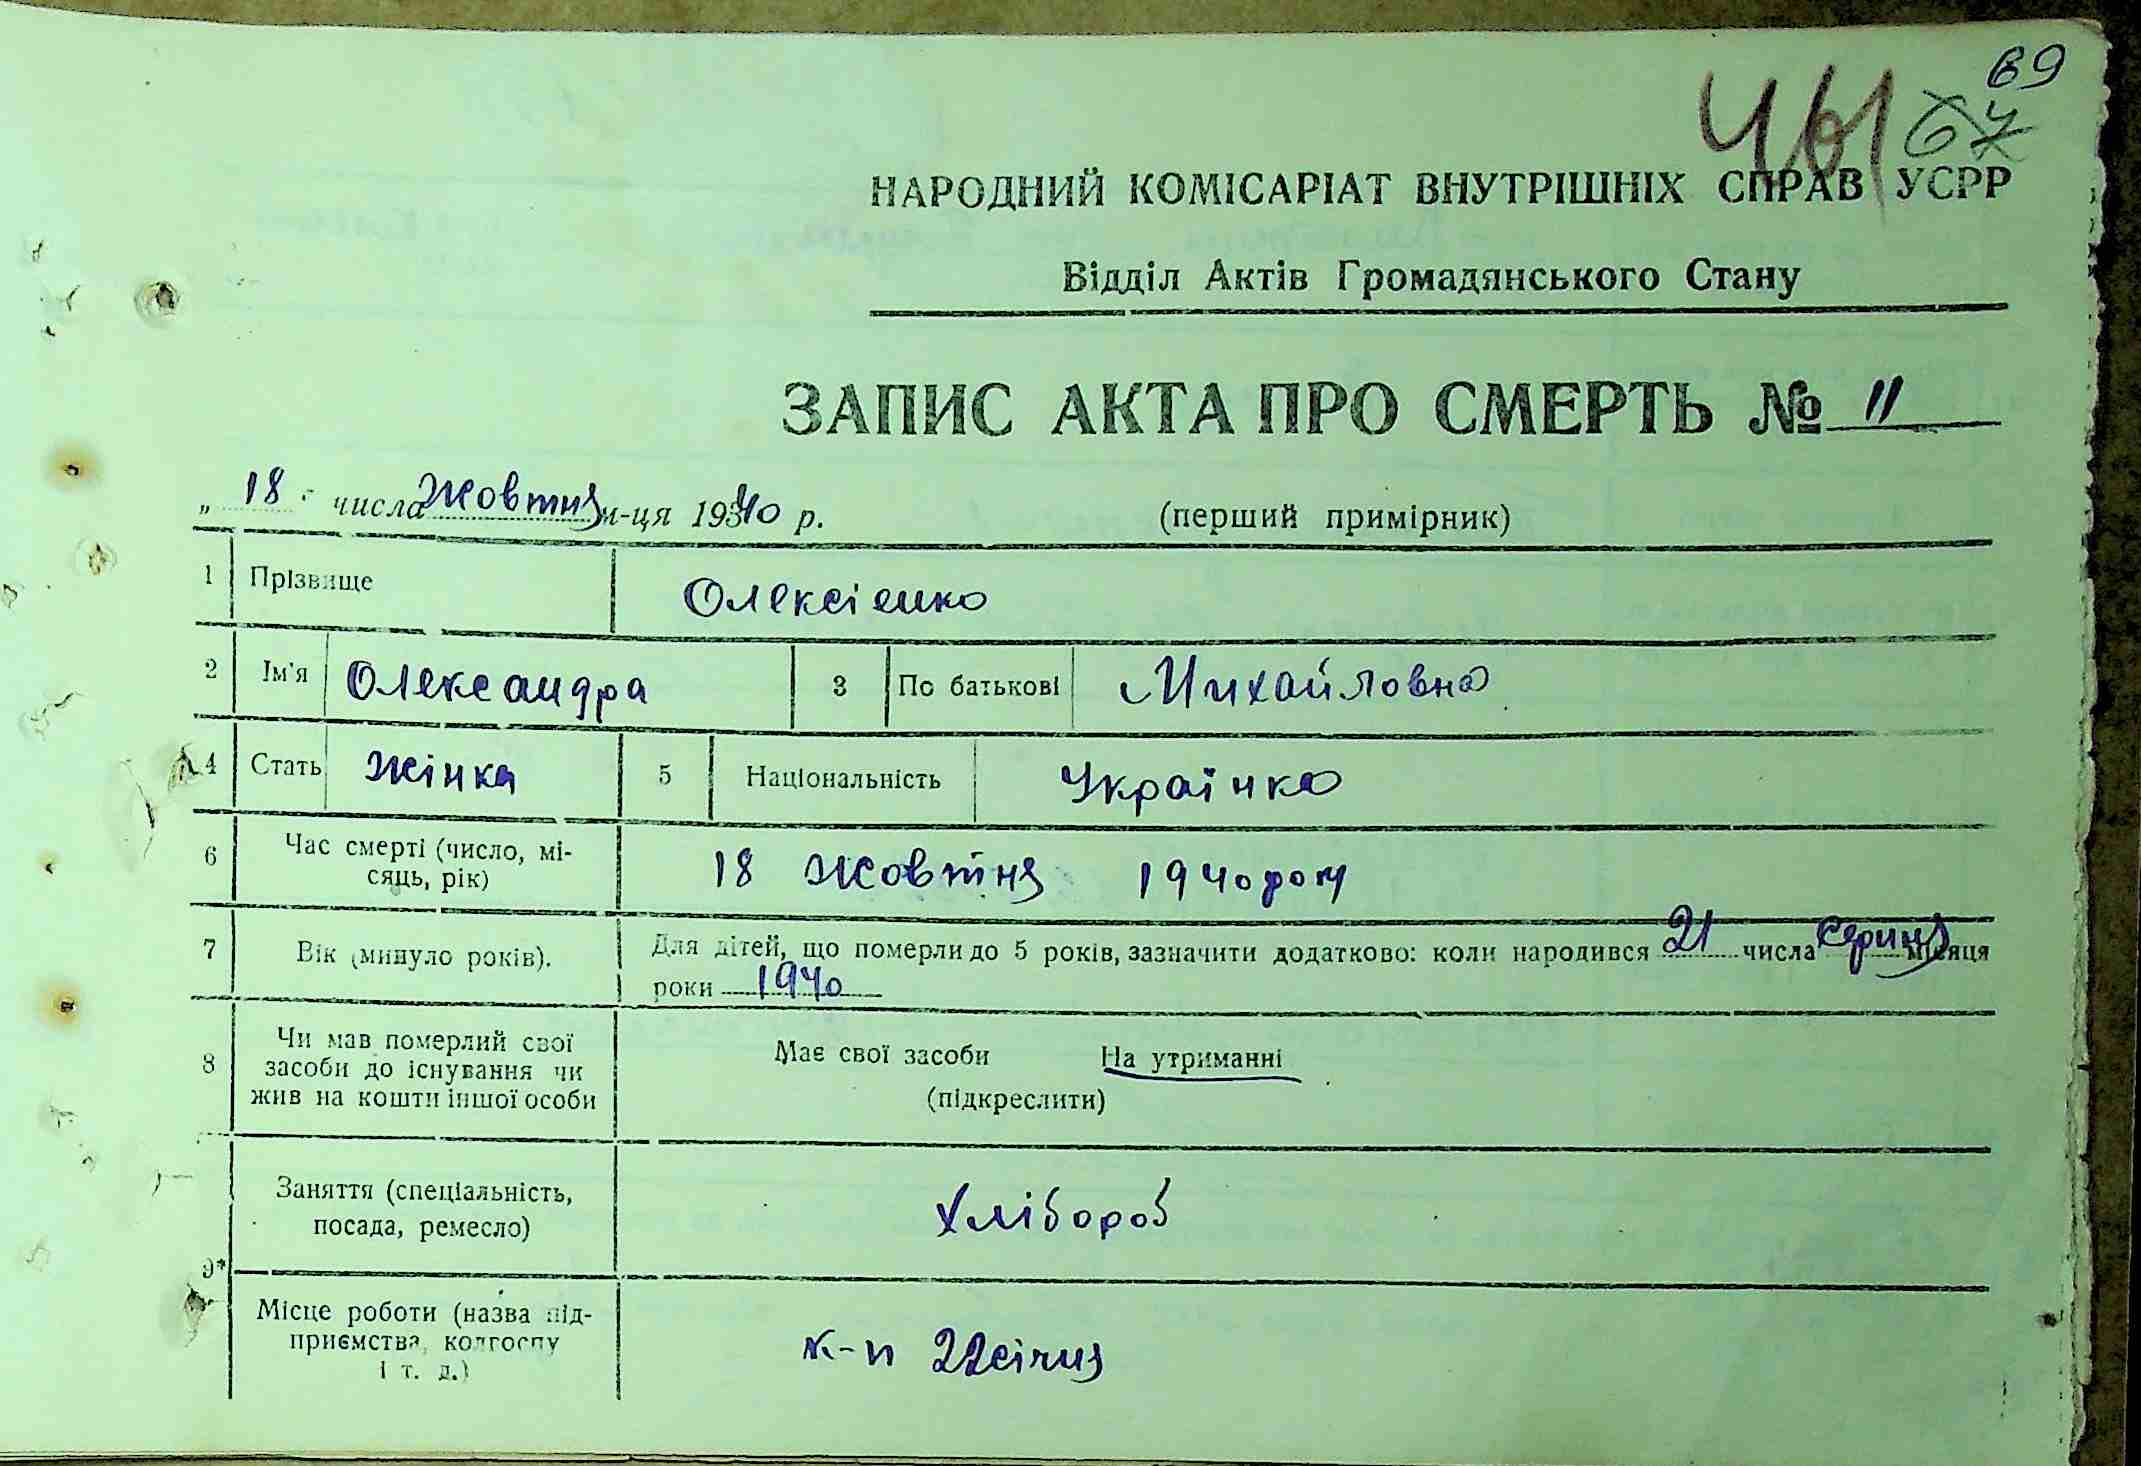 69
461 67
НАРОДНИЙ КОМІСАРІАТ ВНУТРІШНІХ СПРАВ УСРР
Відділ Актів Громадянського Стану
ЗАПИС АКТА ПРО СМЕРТЬ № 11
„ 18 " числа Жовтня м-ця 1940 р. (перший примірник)
1 Прізвище Олексієнко
2 Ім'я Олександра 3 По батькові Михайловна
4 Стать жінка 5 Національність Українка
6 Час смерті (число, мі-
сяць, рік) 18 жовтня 1940 року
7 Вік (минуло років). Для дітей, що померли до 5 років, зазначити додатково: коли народився 21 числа серпня місяця
роки 1940
8 Чи мав померлий свої
засоби до існування чи
жив на кошти іншої особи
Має свої засоби На утриманні
(підкреслити)
Заняття (спеціальність,
посада, ремесло) хлібороб
9*
Місце роботи (назва під-
приємства, колгоспу
і т. д.)
к-п 22 січня